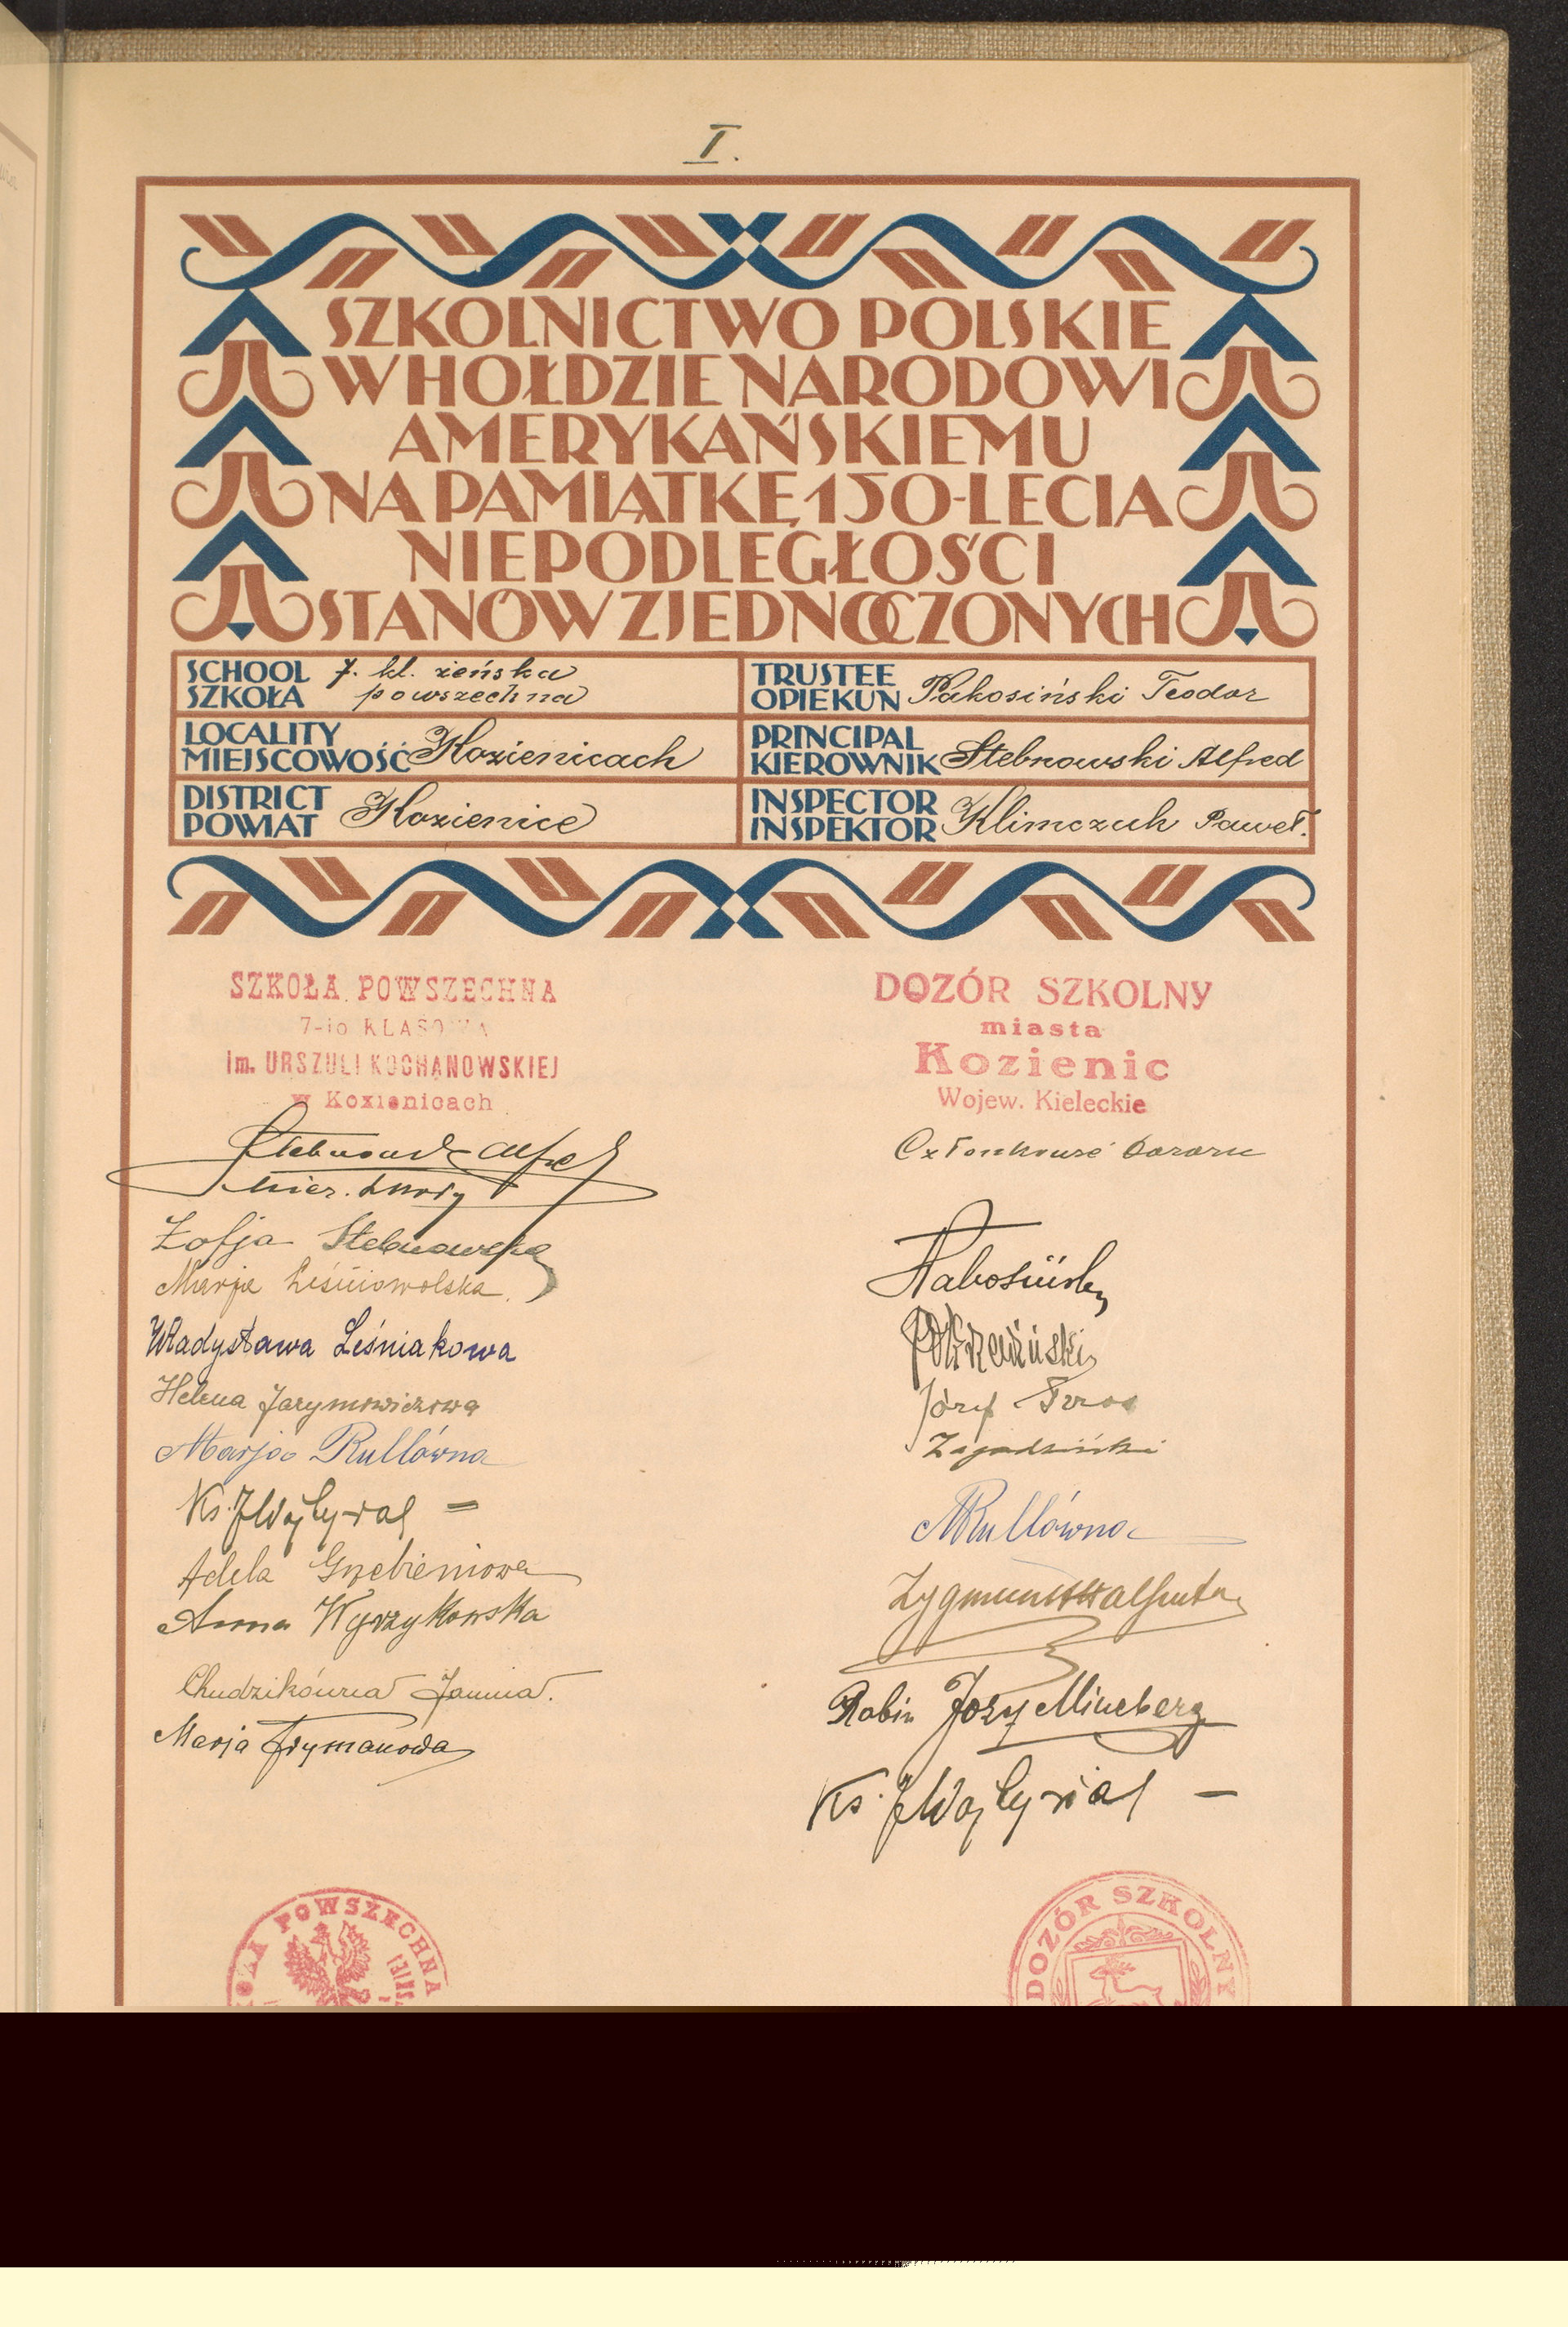 I.
SZKOLNICTWO POLSKIE
W HOŁDZIE NARODOWI
AMERYKAŃSKIEMU
NA PAMIĄTKĘ 150-LECIA
NIEPODLEGŁOŚCI
STANÓW ZJEDNOCZONYCH
SCHOOL
SZKOŁA
7. kl. żeńska
powszechna
TRUSTEE
OPIEKUN
Pakosiński Teodor
LOCALITY
MIEJSCOWOŚĆ
Kozienicach
PRINCIPAL
KIEROWNIK
Stebnowski Alfred
DISTRICT
POWIAT
Kozienice
INSPECTOR
INSPEKTOR
Klimczuk Paweł.
SZKOŁA POWSZECHNA
7-io KLASOWA
im. URSZULI KOCHANOWSKIEJ
w Kozienicach
Stebnowski Alfred
kier. szkoły
Zofja Stebnowska
Marja Leśniowolska.
Władysława Leśniakowa
Helena Jarymowiczowa
Marja Rullówna
Ks. J
Adela Grzebieniowa
Anna Wyrzykowska
Chudzikówna Janina.
Marja Frymanowa
DOZÓR SZKOLNY
miasta
Kozienic
Wojew. Kieleckie
Członkowie Dozoru
Pakosiński
Józef
Zagodziński
MRullówna
Zygmunt
Rabin Józef Mineberg
Ks. J
POWSZECHNA
DOZÓR SZKOLNY